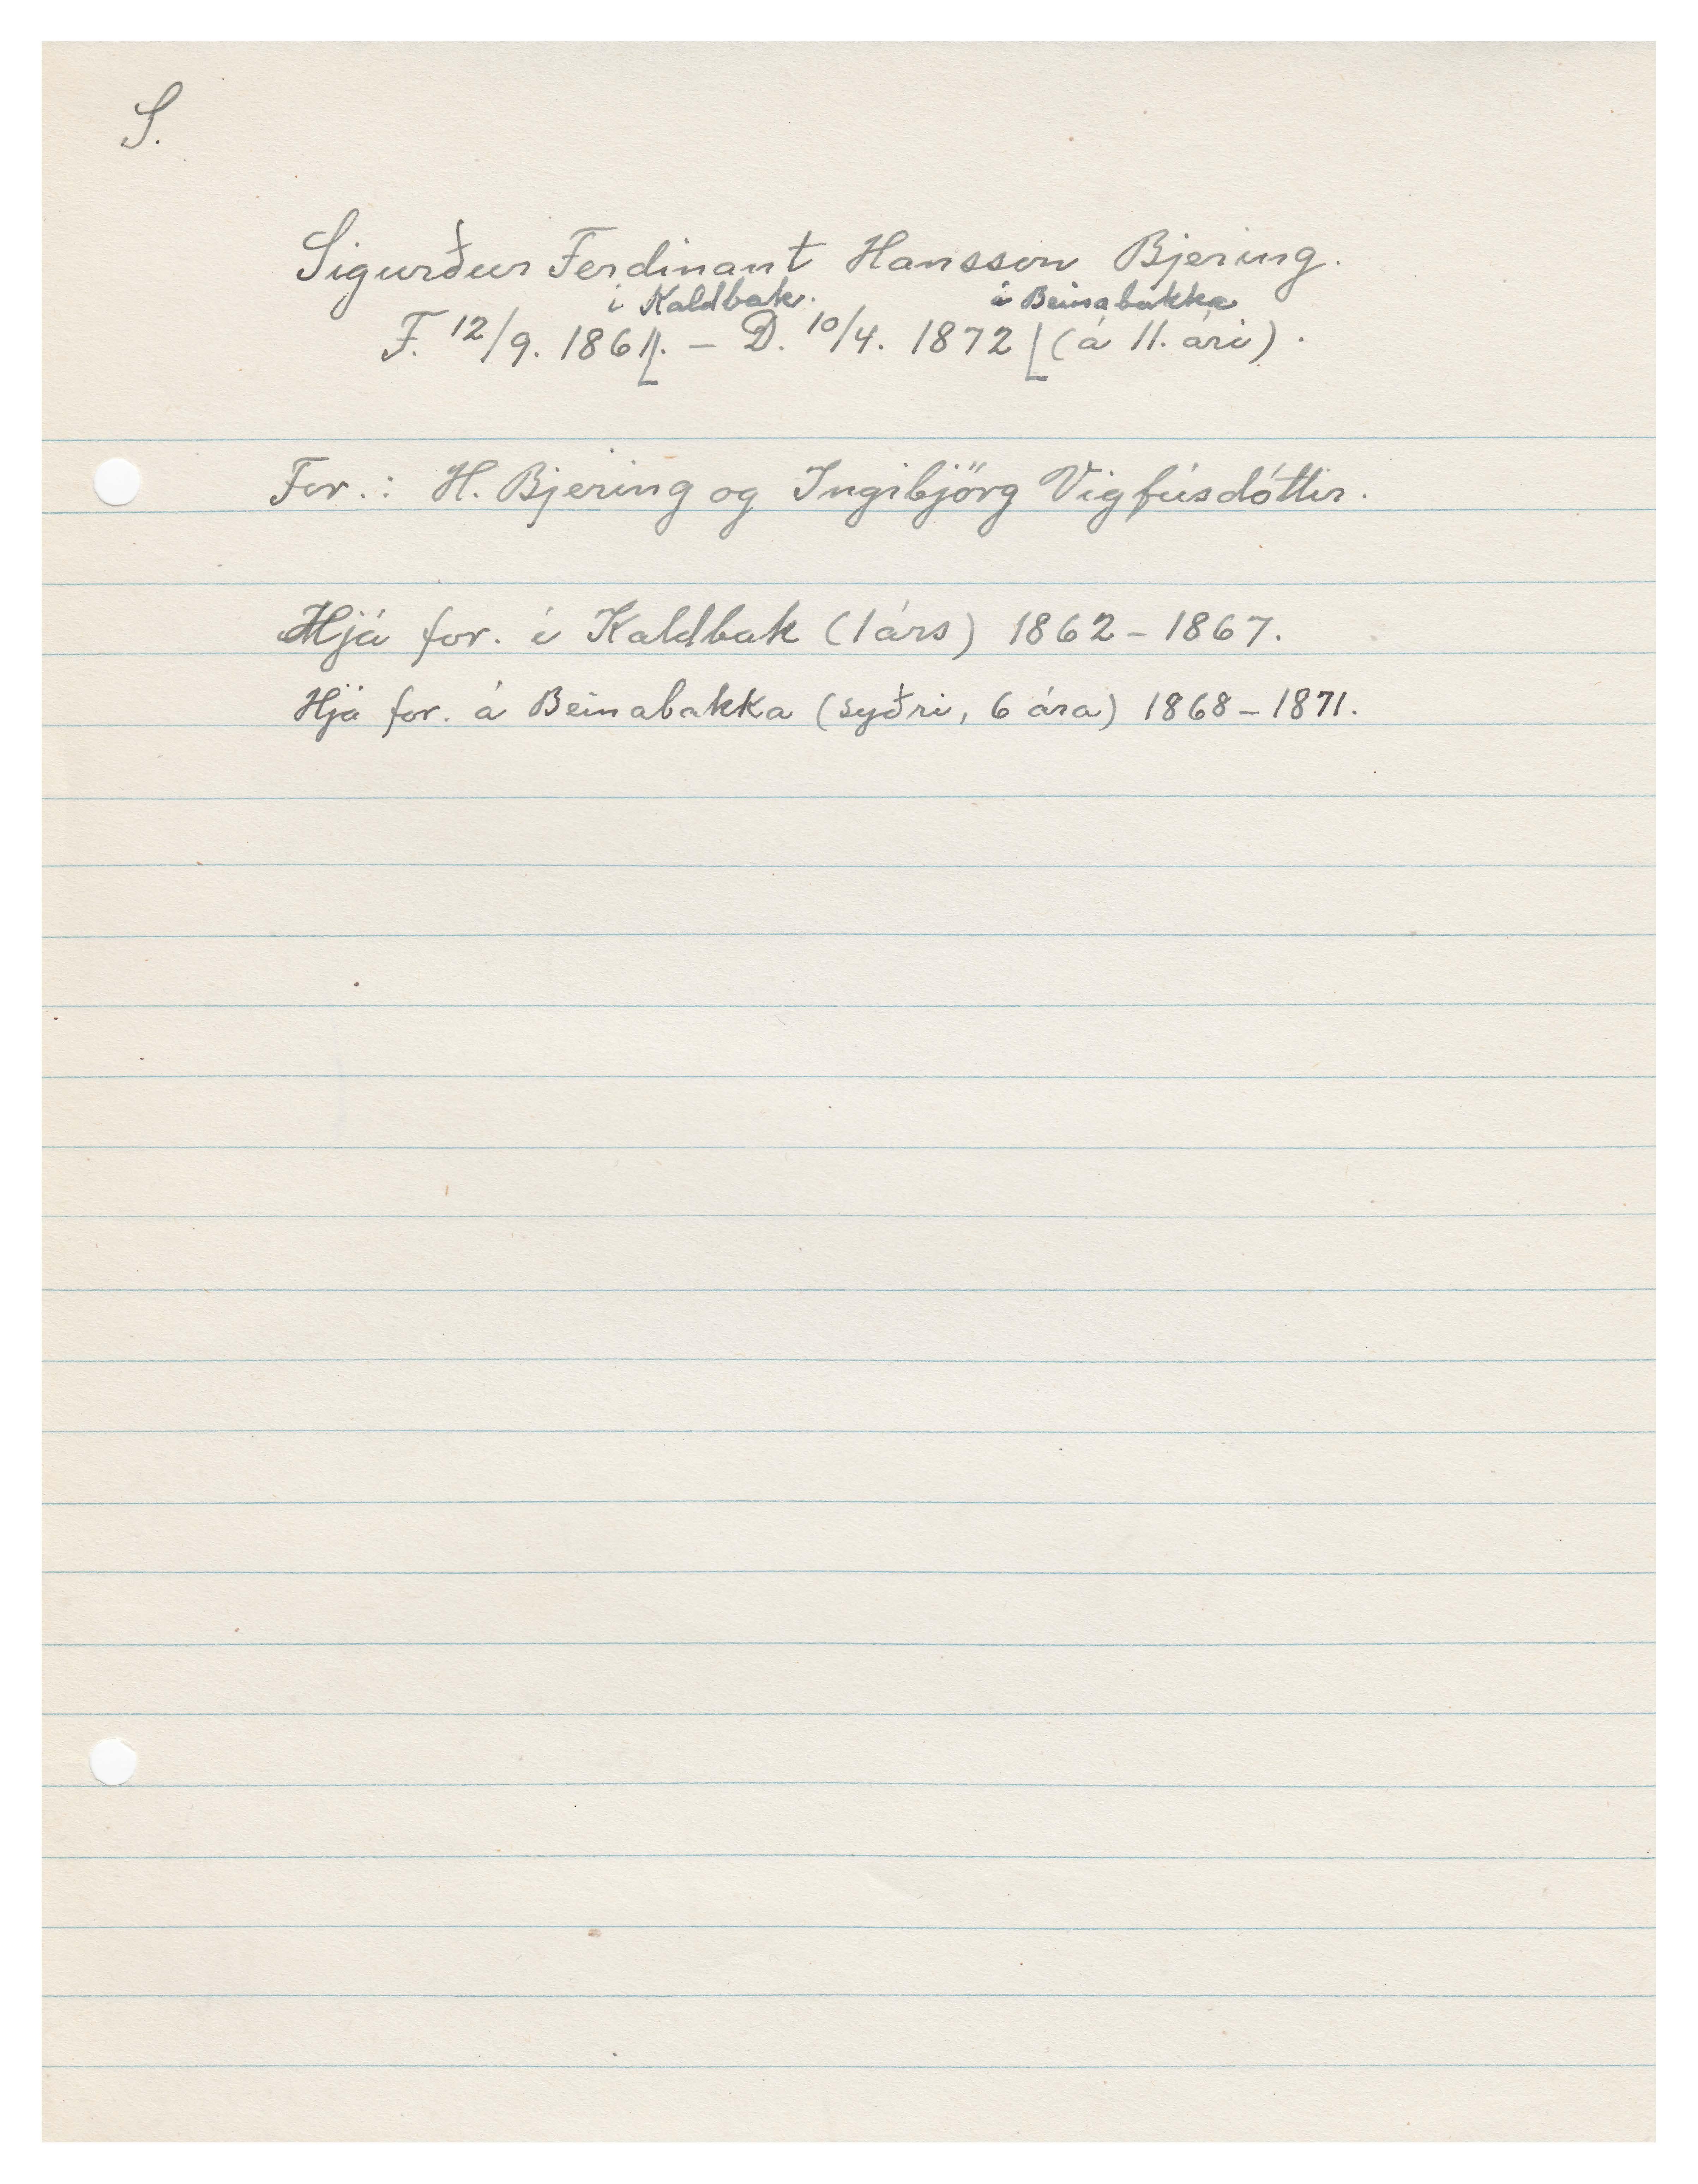 S.
Sigurður Ferdinant Hansson Bjering.
í Kaldbak. á Beinabakka
F. 12/9. 1861. – D. 10/4. 1872 (á 11. ári).
For.: H. Bjering og Ingibjörg Vigfúsdóttir.
Hjá for. í Kaldbak (1 árs) 1862 – 1867.
Hjá for. á Beinabakka (syðri, 6 ára) 1868 – 1871.